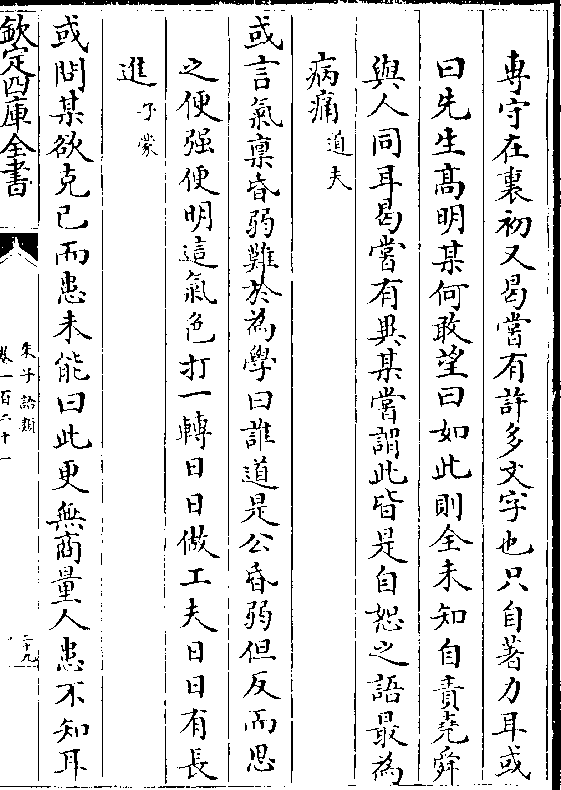 専守在裏初又曷嘗有許多文字也只自著力耳或
曰先生髙明某何敢望曰如此則全未知自責堯舜
與人同耳曷嘗有異某嘗謂此皆是自恕之語最為
病痛道夫
或言氣稟昏弱難於為學曰誰道是公昏弱但反而思
之便强便明這氣色打一轉日日做工夫日日有長
進子蒙
或問某欲克己而患未能曰此更無商量人患不知耳
欽定四庫全書
朱子語類
卷一百二十一
二十九